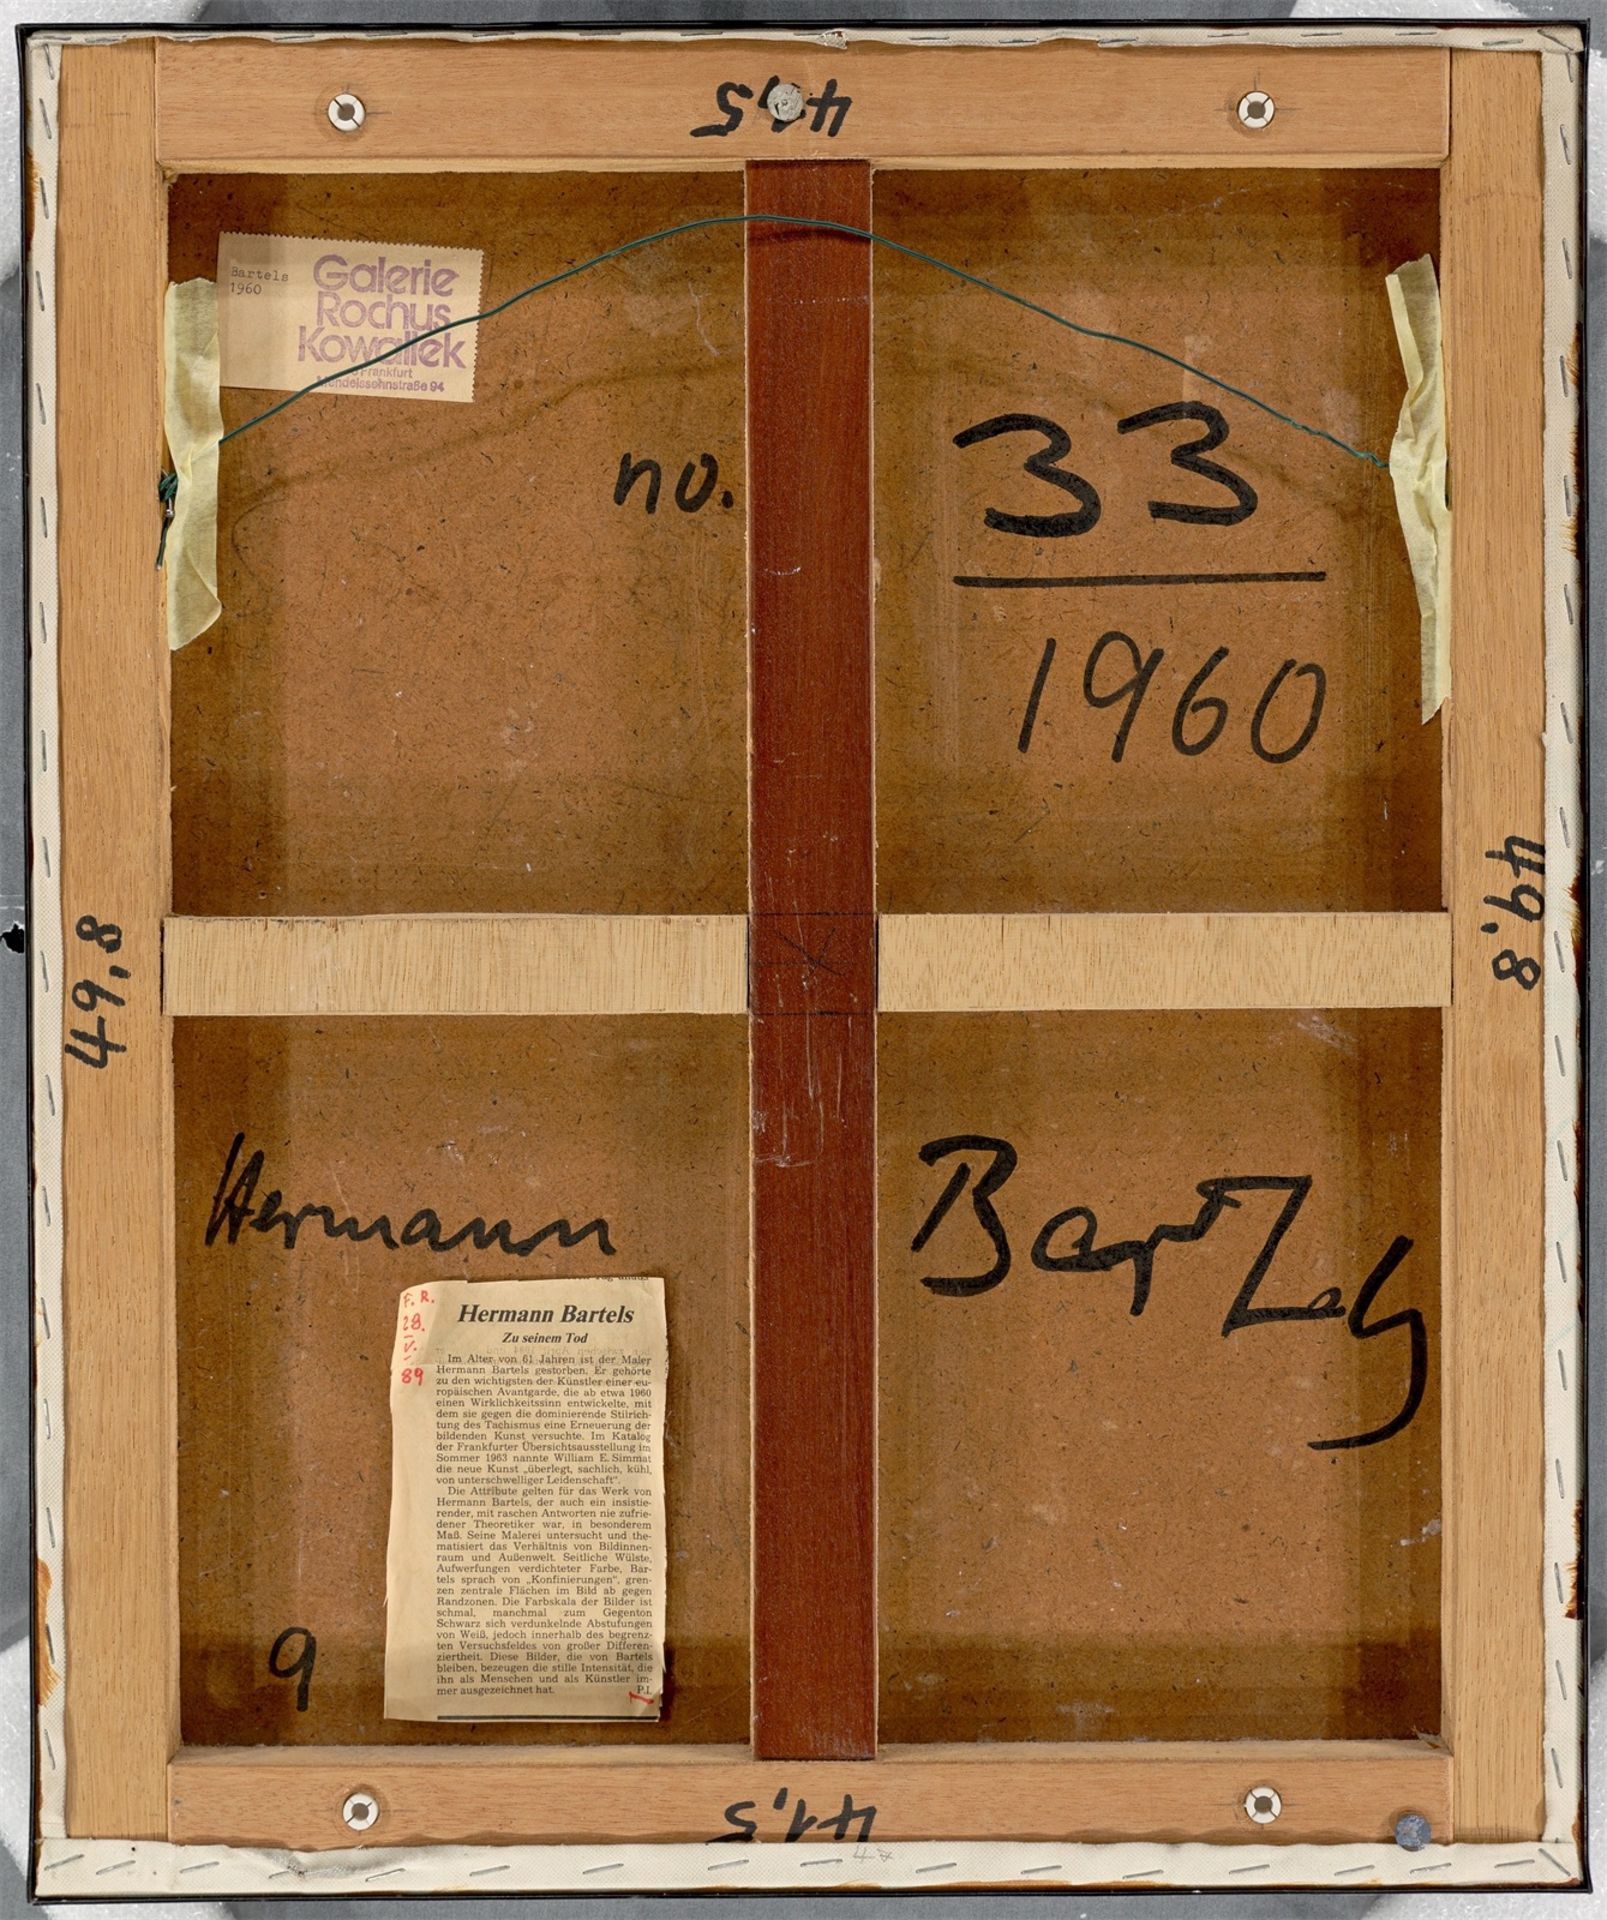 41,5
Bartels
1960
Galerie
Rochus
Kowallek
Frankfurt
Mendelssohnstraße 94
no. 33
1960
49,8
49,8
Hermann Bartels
F. R.
28.
V.
89
Hermann Bartels
Zu seinem Tod
Im Alter von 61 Jahren ist der Maler
Hermann Bartels gestorben. Er gehörte
zu den wichtigsten der Künstler einer eu-
ropäischen Avantgarde, die ab etwa 1960
einen Wirklichkeitssinn entwickelte, mit
dem sie gegen die dominierende Stilrich-
tung des Tachismus eine Erneuerung der
bildenden Kunst versuchte. Im Katalog
der Frankfurter Übersichtsausstellung im
Sommer 1963 nannte William E. Simmat
die neue Kunst „überlegt, sachlich, kühl,
von unterschwelliger Leidenschaft".
Die Attribute gelten für das Werk von
Hermann Bartels, der auch ein insistie-
render, mit raschen Antworten nie zufrie-
dener Theoretiker war, in besonderem
Maß. Seine Malerei untersucht und the-
matisiert das Verhältnis von Bildinnen-
raum und Außenwelt. Seitliche Wülste,
Aufwerfungen verdichteter Farbe, Bar-
tels sprach von „Konfinierungen", gren-
zen zentrale Flächen im Bild ab gegen
Randzonen. Die Farbskala der Bilder ist
schmal, manchmal zum Gegenton
Schwarz sich verdunkelnde Abstufungen
von Weiß, jedoch innerhalb des begrenz-
ten Versuchsfeldes von großer Differen-
ziertheit. Diese Bilder, die von Bartels
bleiben, bezeugen die stille Intensität, die
ihn als Menschen und als Künstler im-
mer ausgezeichnet hat. P.I.
9
41,5